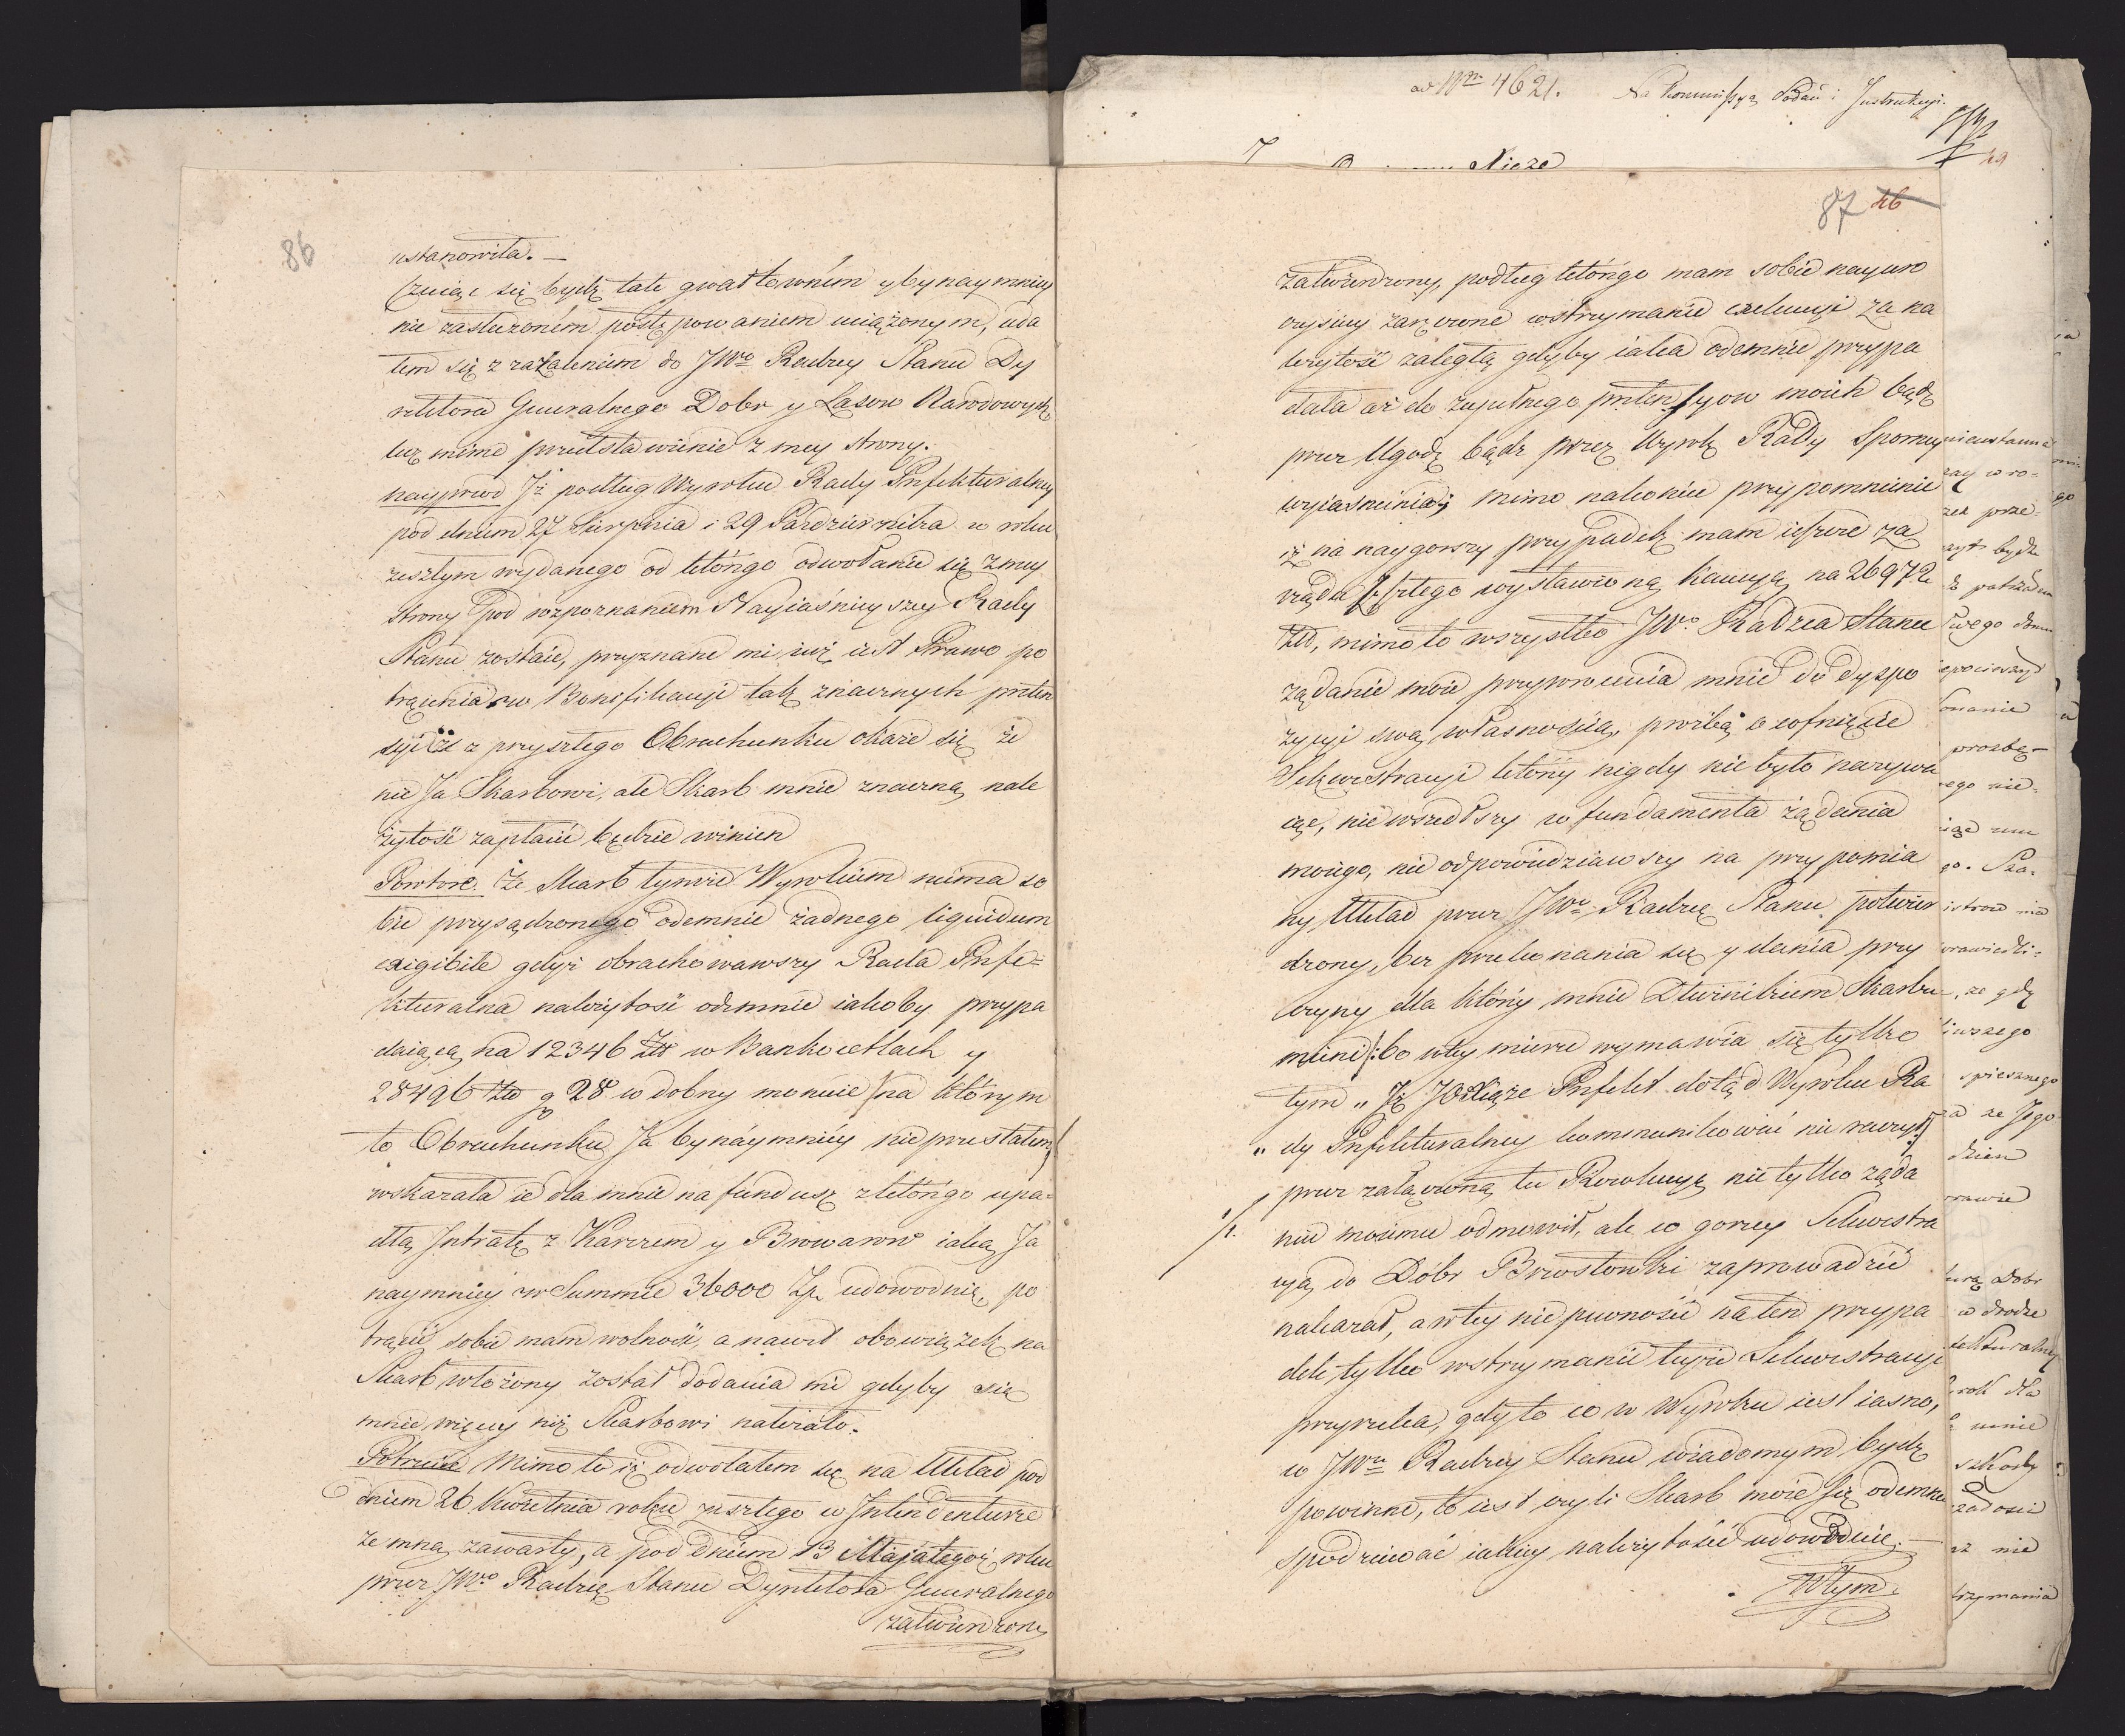 86
ustanowiła. —
Czując się bydź tak gwałtowném y bynaymniey
nie zasłużoném postępowaniem uciążonym, uda
łem się z zażaleniem do JWo Radzcy Stanu Dy
rektora Generalnego Dobr y Lasow Narodowych,
lecz mimo przedstawienie z mey strony.
nayprzod Iż podług Wyroku Rady Prefekturalney
pod dniem 27 Sierpnia i 29 Pazdziernika w roku
zeszłym wydanego od którego odwołanie się z mey
strony pod rozpoznaniem Nayiaśnieyszey Rady
Stanu zostaie, przyznane mi iuż iest Prawo po
trącenia w Bonifikacyi tak znacznych preten
syi iż z przyszłego Obrachunku okaże się że
nie Ja Skarbowi, ale Skarb mnie znaczną nale
żytość zapłacić będzie winien
Powtore. Że Skarb tymże Wyrokiem niema so
bie przysądzonego odemnie żadnego liquidum
exigibile gdyż obrachowawszy Rada Prefe=
kturalna należytość odemnie iakoby przypa
daiącą na 12346 Złł w Bankocetlach y
28496 złł g 28 w dobrey monecie (na którym
to Obrachunku Ja bynáymniéy nieprzestałem)
wskazała ie dla mnie na fundusz z którego upa=
dłą Intratę z Karczem y Browarow iaką Ja
naymniéy w Summie 36000 Zp. udowodnię, po
trącić sobie mam wolność, a nawet obowiązek na
Skarb włożony został dodania mi gdyby się
mnie więcey niż Skarbowi należało.
Potrzecie Mimo to iż odwołałem się na Układ pod
dniem 26 Kwietnia roku zeszłego w Intendenturze
ze mną zawarty, a pod dniem 13 Maja tegoż roku
przez JWo Radzcę Stanu Dyrektora Generalnego
zatwierdzony
ad Nrm 4621. Na Kommissyą Podań i Instrukcyi.
Nieze
49
87 46
zatwierdzony, podług którego mam sobie nayuro
czyściey zaręczone wstrzymanie exekucyi za na
leżytość zaległą gdyby iaka odemnie przypa
dała aż do zupełnego pretensyow moich bądź
przez Ugodę bądź przez Wyrok Rady Sporney
wyiaśnienia; mimo nakoniec przypomnienie
iż na naygorszy przypadek mam ieszcze za
rządu przeszłego wystawioną kaucyą na 26972
Złł, mimo to wszystko JWo. Radzca Stanu
żądanie moie przywrócenia mnie do dyspo
zycyi swą własnością, prośbą o cofnięcie
Sekwestracyi któréy nigdy nie było nazywa
iąc, nie wszedłszy w fundamenta żądania
moiego, nie odpowiedziawszy na przypomnia
ny Układ przez JWo Radzcę Stanu potwier
dzony, bez przekonania się y dania przy
czyny dla któréy mnie Dłużnikiem Skarbu
mieni /:bo w tey mierze wymawia się tylko
tym „ Iż JO Xiąże Prefekt dotąd Wyroku Ra
„ dy Prefekturalney kommunikować nie raczył:/
przez załączoną tu Rezolucyą nie tylko żąda
·/. niu moiemu odmowił, ale co gorzey Sekwestra
cyą do Dóbr Brzostowki zaprowadzić
nakazał, a w tey niepewności na ten przypa
dek tylko wstrzymanie teyże Sekwestracyi
przyrzeka, gdy to co w Wyroku iest iasno,
w JWo Radzcy Stanu wiadomym bydź
powinno, to iest czyli Skarb może się odemnie
spodziewać iakiey należytości udowodnię. —
W tym
nieustanna
zay w ro=
zez prze=
być
swego domu
pocieszyć
prozbą—
ego nie=
go. Ska=
ze gdy
spiesznego
za ze Jego
dzien
Dobr
w drodze
fekturalney
rok dla
mnie
szkody
nie
trzymania